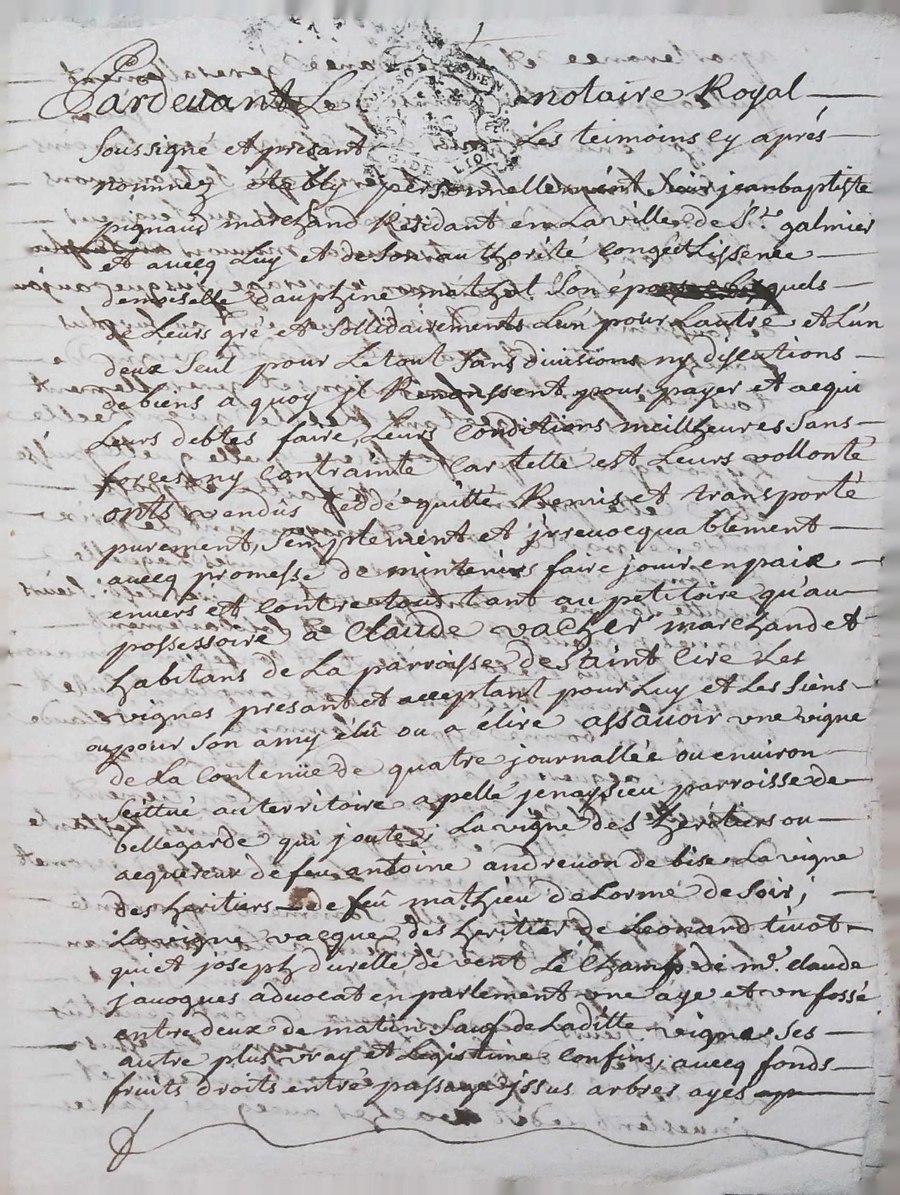 Pardevant Le notaire Royal
Soussigné et présant Les teimoins cy aprés
nommez étably personnellement Sieur jeanbaptiste
pignaud marchand Résidant en La ville de St. galmier
et avecq Luy et de Son authorité congé et Lissence
demoiselle dauphine mathel Son épouse Lesquels
de Leurs gré et sollidairements L'un pour Lautre et L'un
deux Seul pour Le tout Sans divisions ny discutions
de biens a quoy jl Renonssent pour payer et acqui
Leurs debtes faire Leurs Conditions meilheures Sans
forces ny Contrainte Car telle est Leurs vollonté
onts vendus Ceddé quitté Remis et transporté
purement, Semplement et jrrevocquablement
avecq promesse de mintenir faire jouir en paix
envers et contre tous tant au petitoire qu'au
possessoire à Claude vacher marchand et
habitans de La parroisse de Saint Cire Les
vignes presant et acceptant pour Luy et Les Siens
ou pour Son amy élû ou a élire assavoir une vigne
de La Contenüe de quatre journallée ou environ
Scittué au territoire apellé jenaysieu parroisse de
bellegarde qui joute La vigne des heritiers ou
acquereur de feu antoine andrevon de bise La vigne
des heritiers de feû mathieu deLorme de Soir;
La vigne vacque des héritier de Leonard tivot
qui et joseph durelle de vent Le Champ de mr. Claude
jacoques advocat en parlement une aye et un fossé
entre deux de matin Sauf de Laditte vigne Ses
autre plus vray et Legistime confins, avecq fonds
fruits droits entré passage jssus arbres ayes